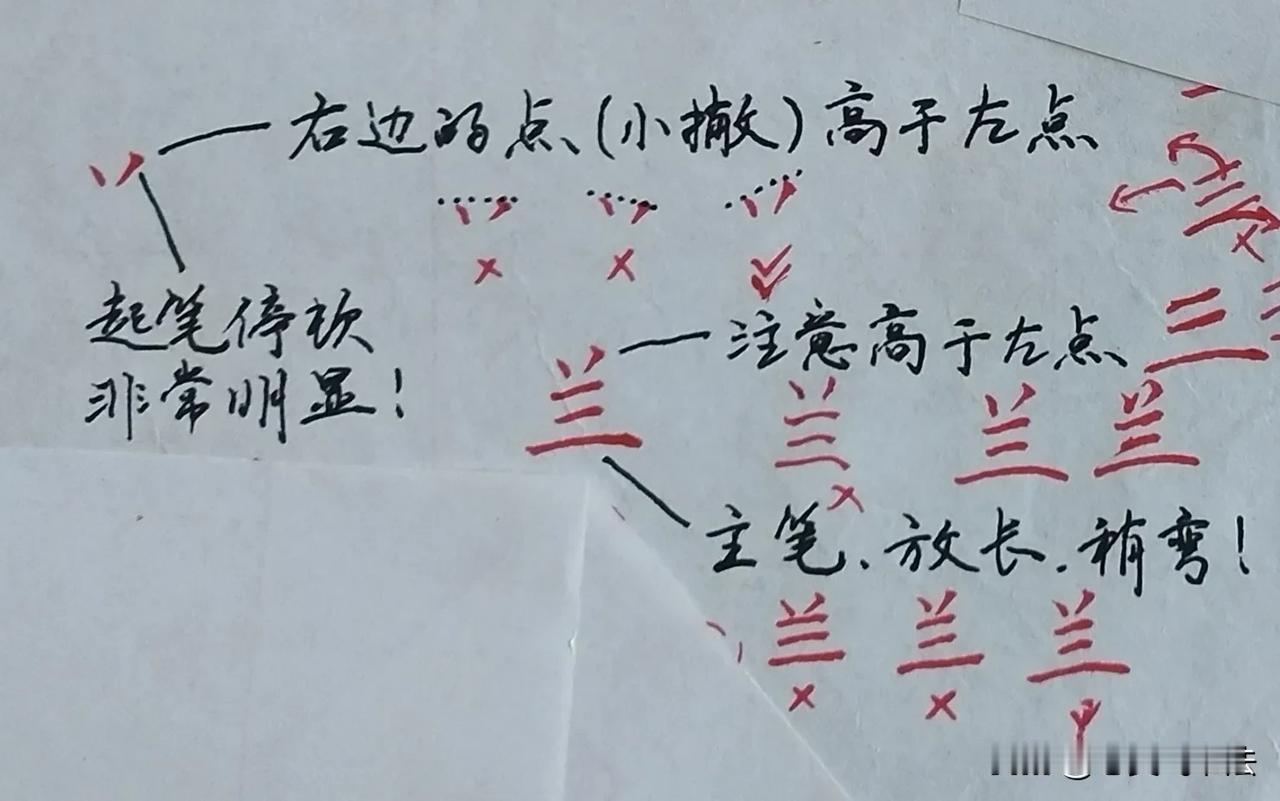 右边的点(小撇)高于左点
起笔停顿
非常明显!
兰
注意高于左点
兰 兰 兰
主笔.放长.稍弯!
兰 兰 兰